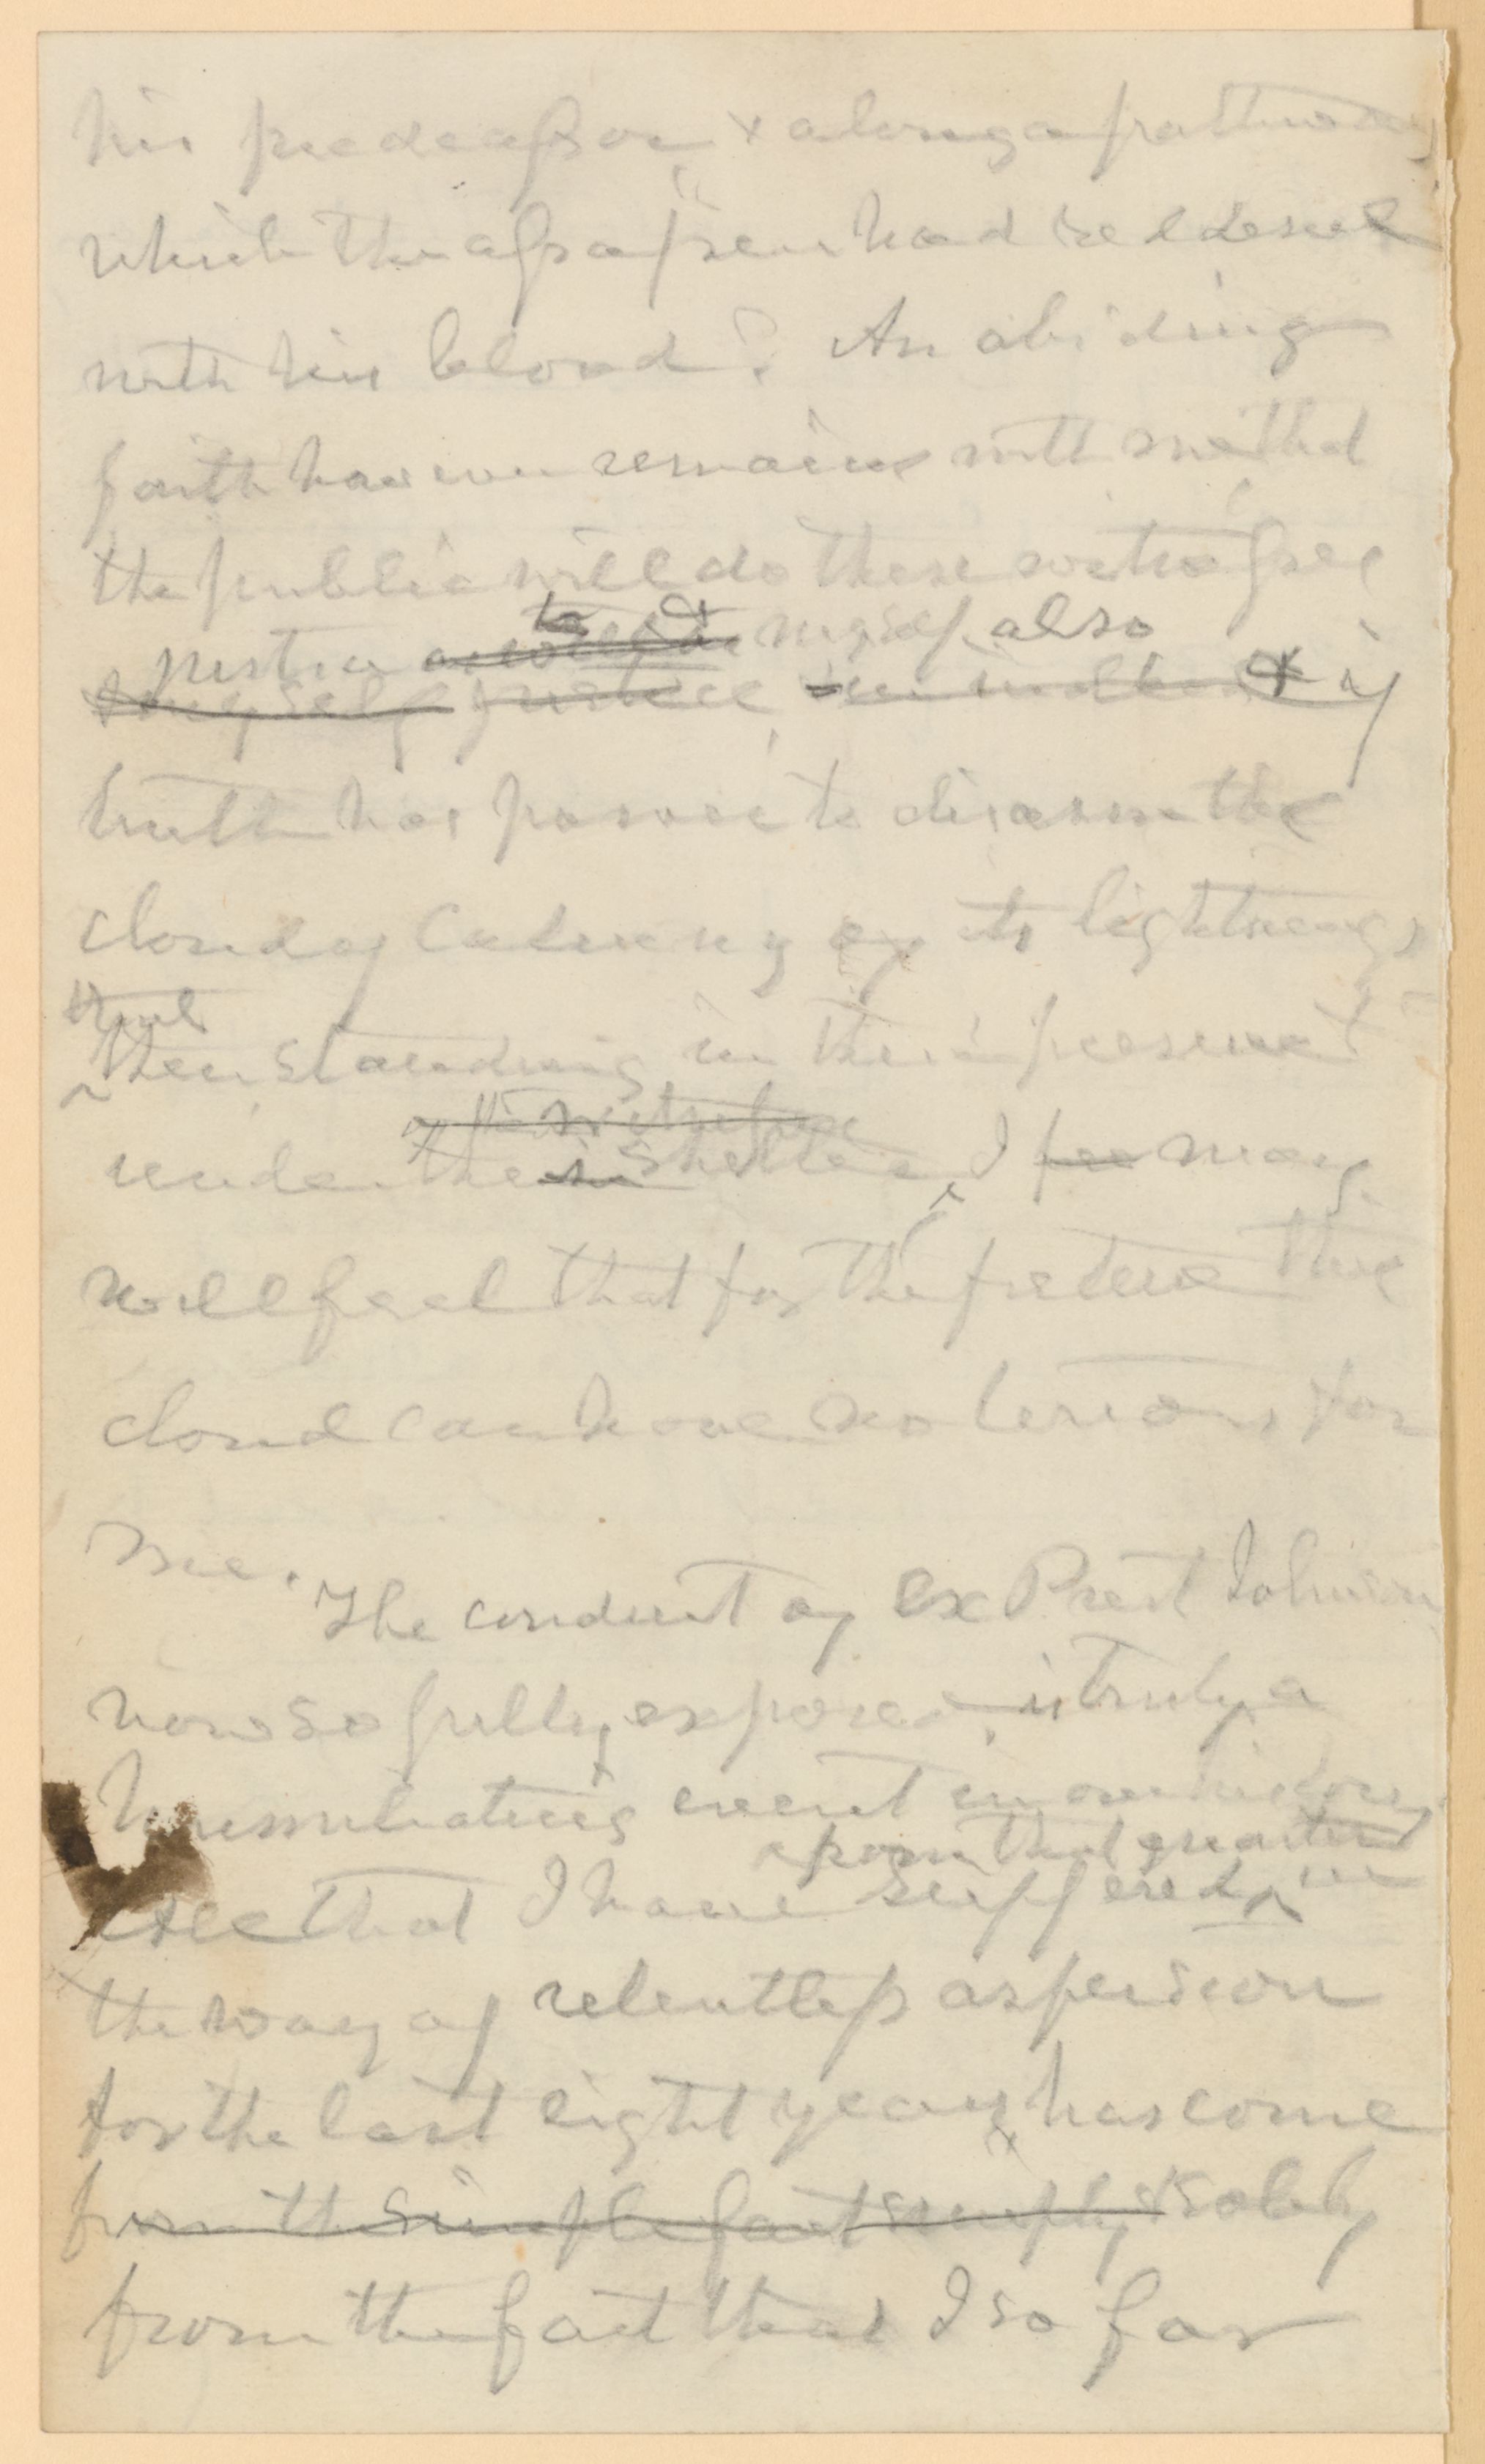 his predecessor, & along a pathway
which the assassin had reddened
with his blood? An abiding
faith however remains with me that
the public will do these witnesses
justice as well as to & myself also
to myself justice in the matter & if
truth has power to disarm the
cloud of calumny of its lightnings
that
then standing in their presence &
of the witnesses
under their shelter, I fee may
well feel that for the future this
cloud can have no terrors for
me. The conduct of ex Prest Johnson
now so fully exposed, is truly a
humiliating event in our history
from that quarter
All that I have suffered in
the way of relentless aspersion
for the last eight years, has come
from the simple fact simply & solely
from the fact that I so far